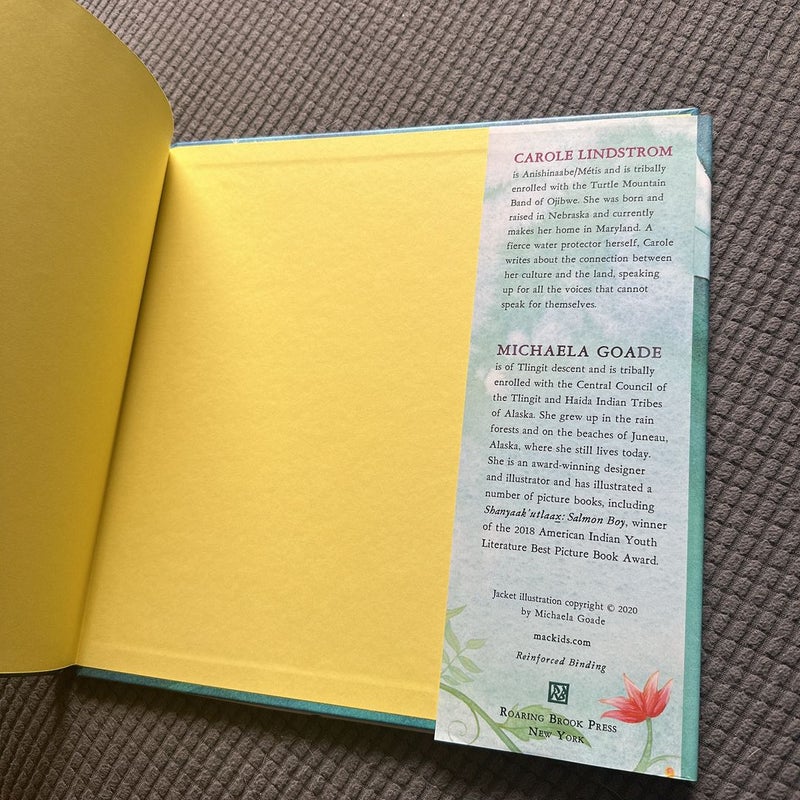 CAROLE LINDSTROM
is Anishinaabe/Métis and is tribally
enrolled with the Turtle Mountain
Band of Ojibwe. She was born and
raised in Nebraska and currently
makes her home in Maryland. A
fierce water protector herself, Carole
writes about the connection between
her culture and the land, speaking
up for all the voices that cannot
speak for themselves.
MICHAELA GOADE
is of Tlingit descent and is tribally
enrolled with the Central Council of
the Tlingit and Haida Indian Tribes
of Alaska. She grew up in the rain
forests and on the beaches of Juneau,
Alaska, where she still lives today.
She is an award-winning designer
and illustrator and has illustrated a
number of picture books, including
Shanyaak'utlaax̱: Salmon Boy, winner
of the 2018 American Indian Youth
Literature Best Picture Book Award.
Jacket illustration copyright © 2020
by Michaela Goade
mackids.com
Reinforced Binding
ROARING BROOK PRESS
NEW YORK